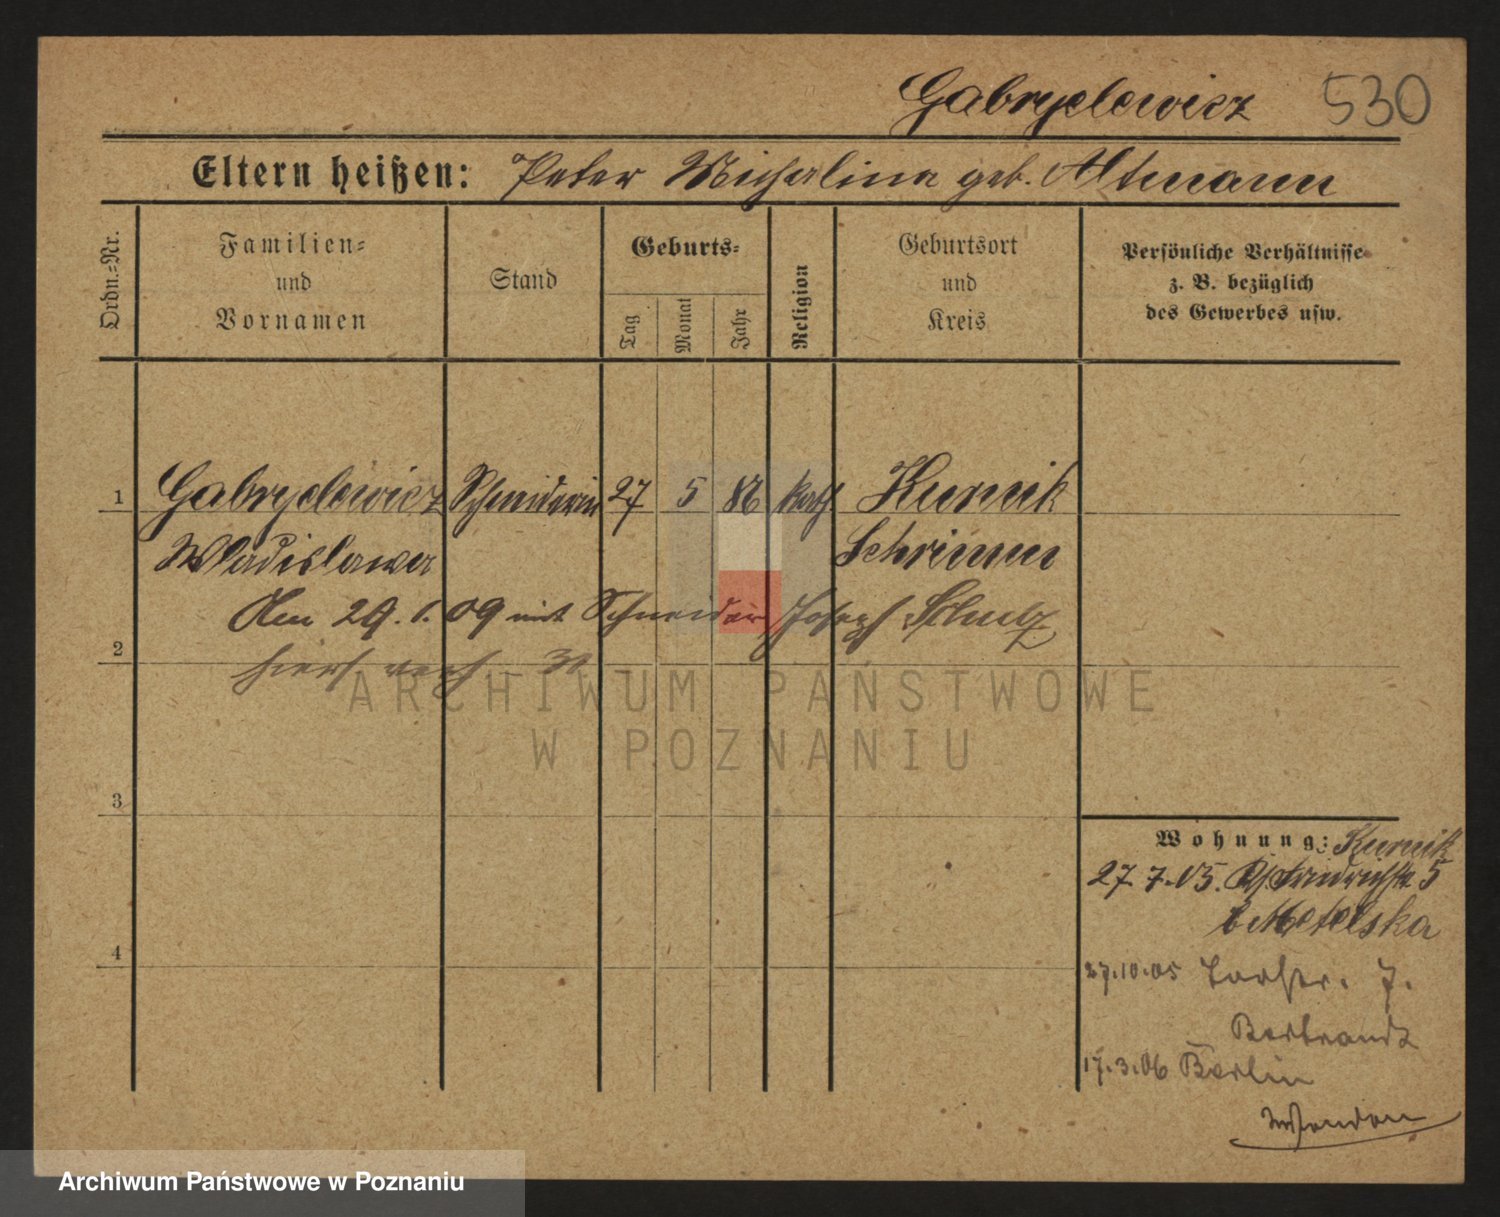 Gabryelewicz 530
Eltern heißen: Peter Michalina geb. Altmann
Ordn.=Nr.
Familien=
und
Vornamen
Stand
Geburts=
Tag
Monat
Jahr
Religion
Geburtsort
und
Kreis
Persönliche Verhältnisse
z. B. bezüglich
des Gewerbes usw.
1 Gabryelewicz Schneiderin 27 5 86 kath Kurnik
Wladislawa Schrimm
Am 29. 1. 09 mit Schneider Joseph
2 hiers. verh.
ARCHIWUM PAŃSTWOWE
W POZNANIU
3
Wohnung: Kurnik
27.7.05. 5
b Metelska
4
27.10.05 7.
17.3.06 Berlin
Wenden
Archiwum Państwowe w Poznaniu